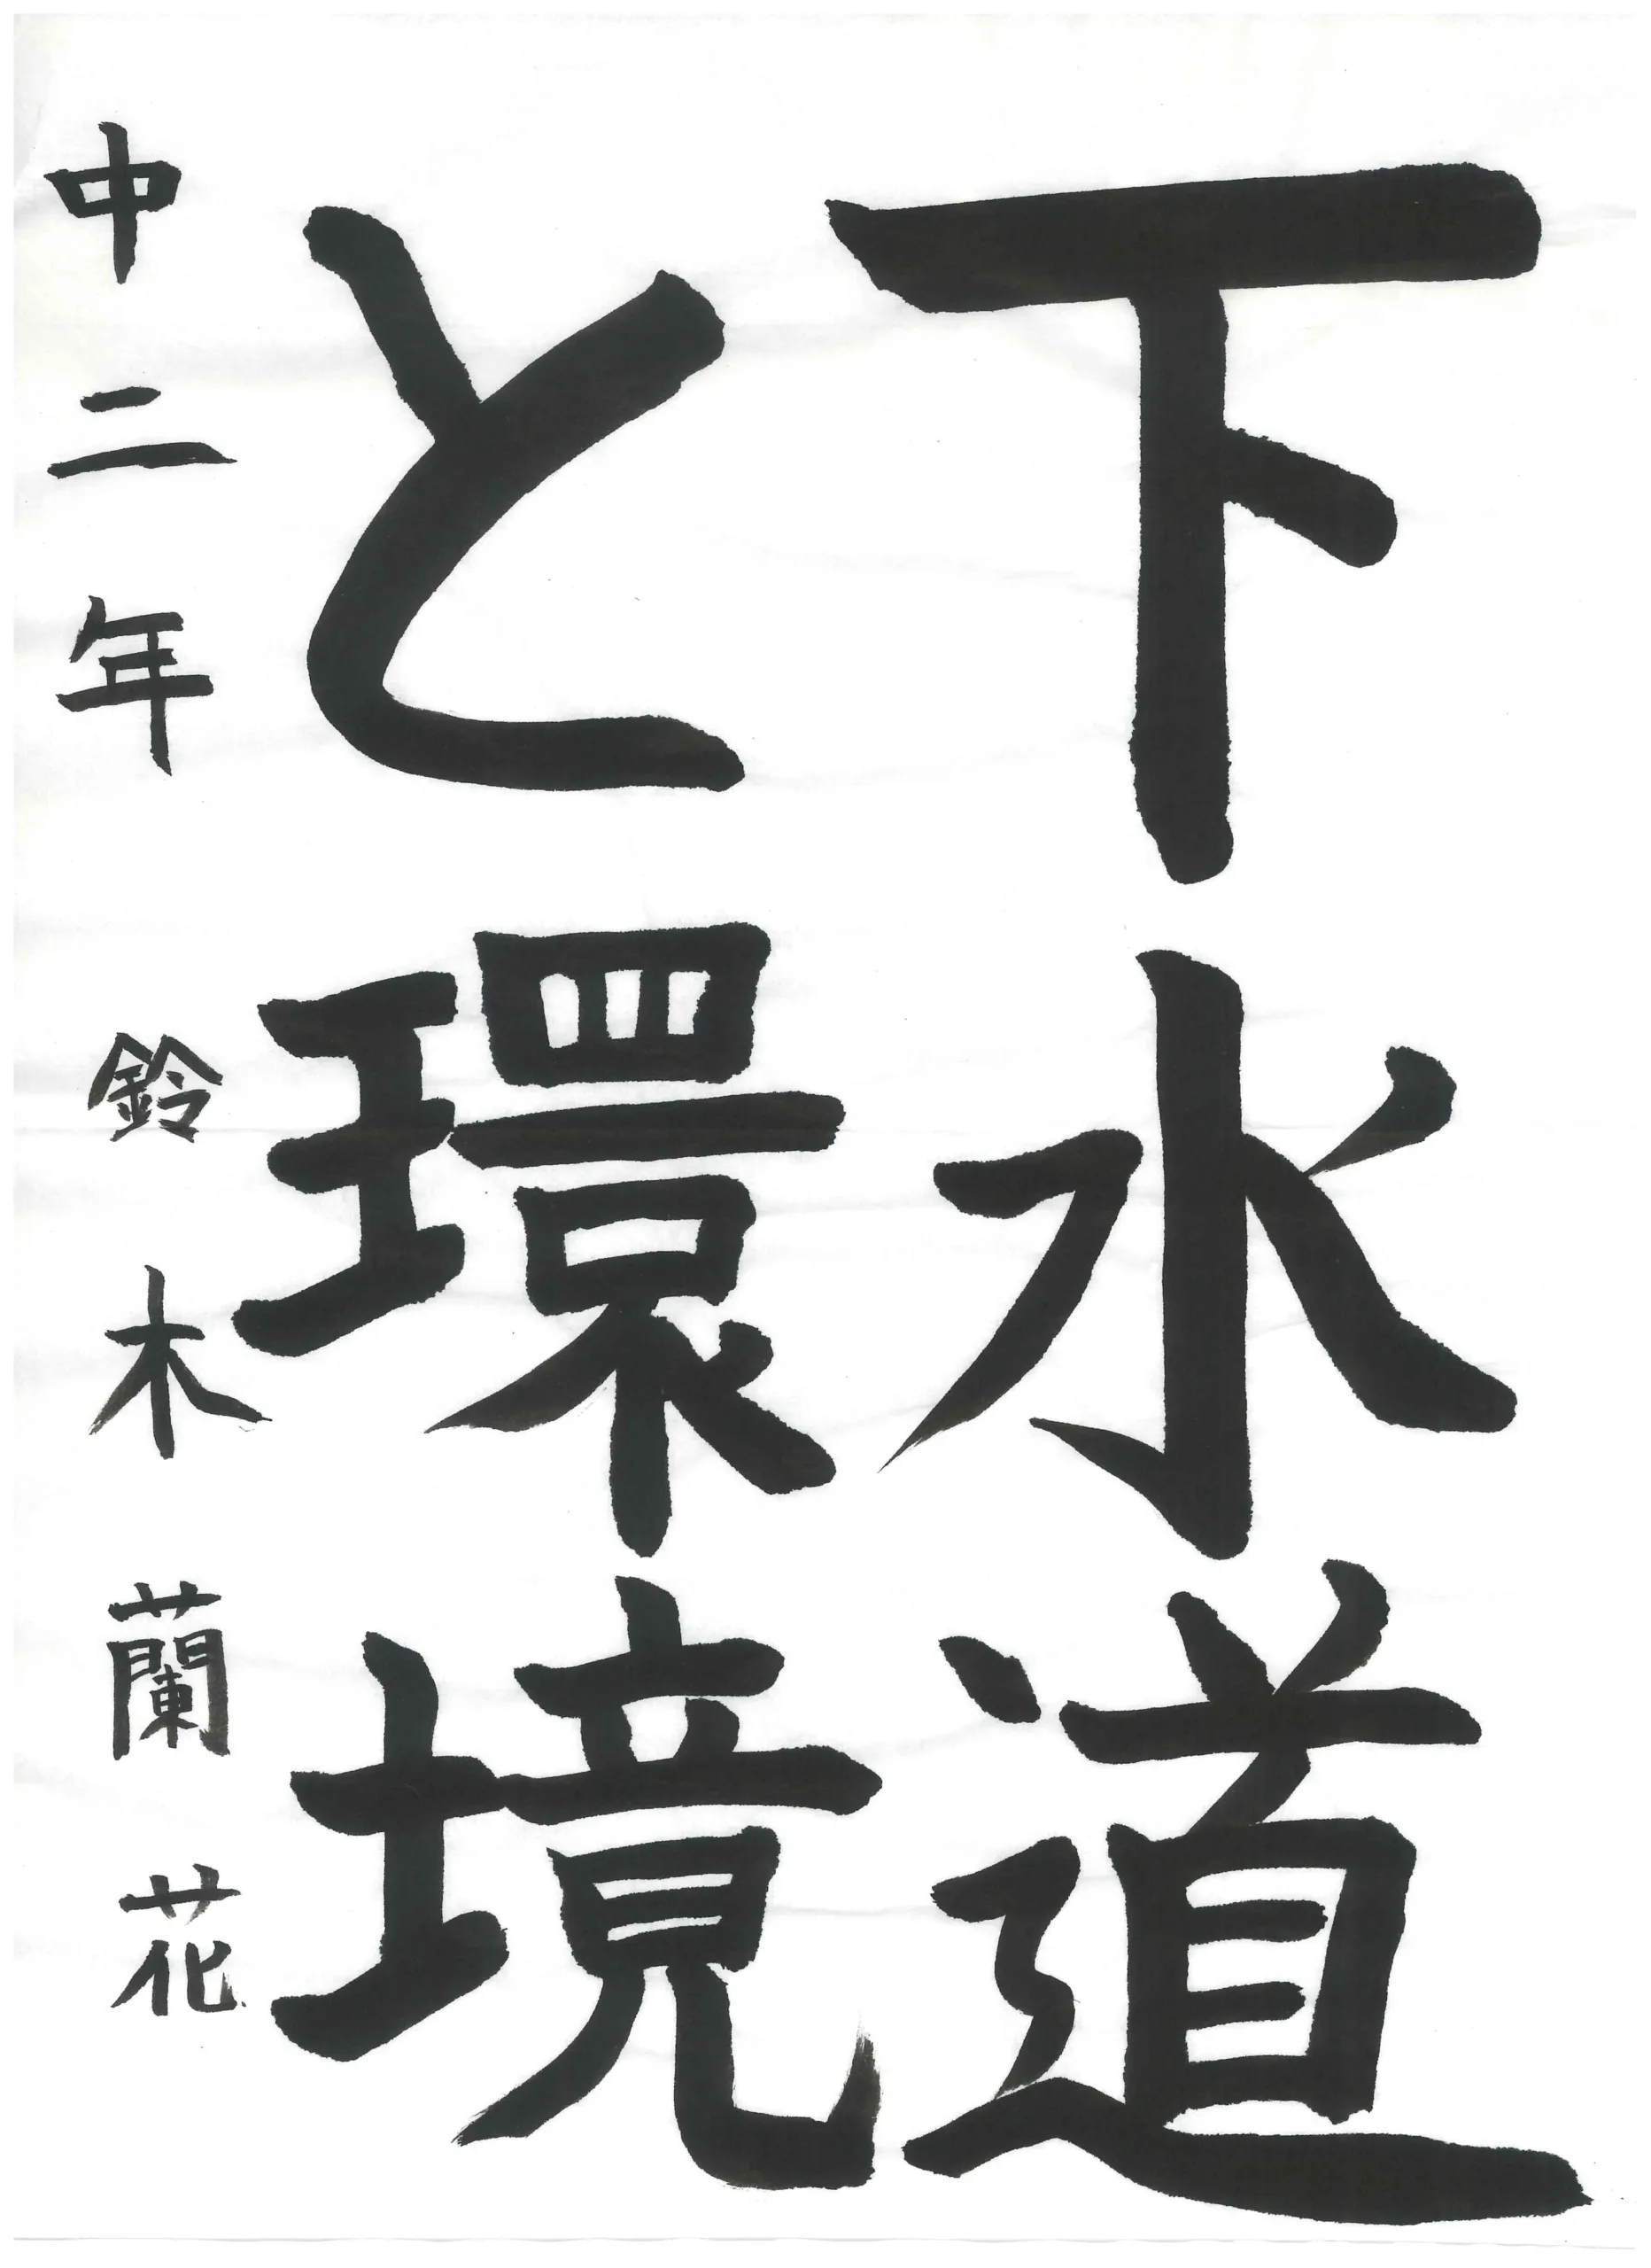 下水道
と環境
中二年 鈴木蘭花